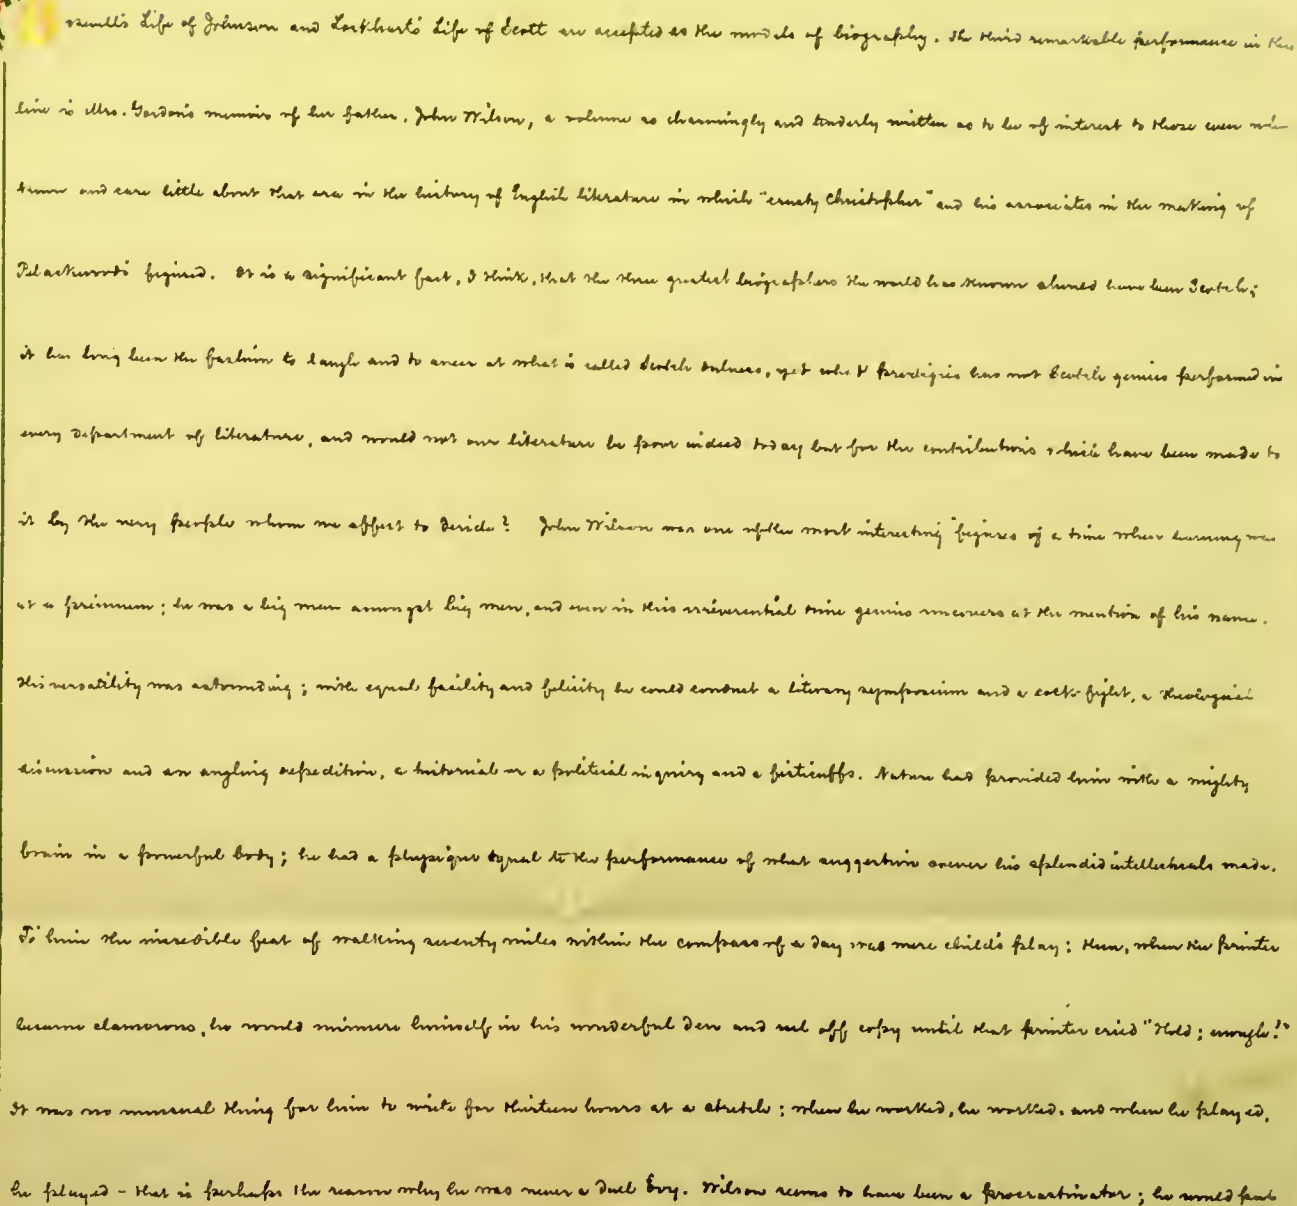 Boswell's Life of Johnson and Lockhart's Life of Scott are accepted as the models of biography. The third remarkable performance in this
line is Mrs. Gordon's memoir of her father, John Wilson, a volume so charmingly and tenderly written as to be of interest to those even who
know and care little about that era in the history of English literature in which "crusty Christopher" and his associates in the making of
Blackwood's figured. It is a significant fact, I think, that the three greatest biographers the world has known should have been Scotch;
it has long been the fashion to laugh and to sneer at what is called Scotch dulness, yet what prodigies has not Scotch genius performed in
every department of literature, and would not our literature be poor indeed today but for the contributions which have been made to
it by the very people whom we affect to deride? John Wilson was one of the most interesting figures of a time when learning was
at a premium; he was a big man amongst big men, and even in this irreverential time genius uncovers at the mention of his name.
His versatility was astounding; with equal facility and felicity he could conduct a literary symposium and a cock-fight, a theological
discussion and an angling expedition, a historical or a political inquiry and a fisticuffs. Nature had provided him with a mighty
brain in a powerful body; he had a physique equal to the performance of what suggestion soever his splendid intellectuals made.
To him the incredible feat of walking seventy miles within the compass of a day was mere child's play; then, when the printer
became clamorous, he would immure himself in his wonderful den and reel off copy until that printer cried "Hold; enough!"
It was no unusual thing for him to write for thirteen hours at a stretch; when he worked, he worked, and when he played,
he played – that is perhaps the reason why he was never a dull boy. Wilson seems to have been a procrastinator; he would put